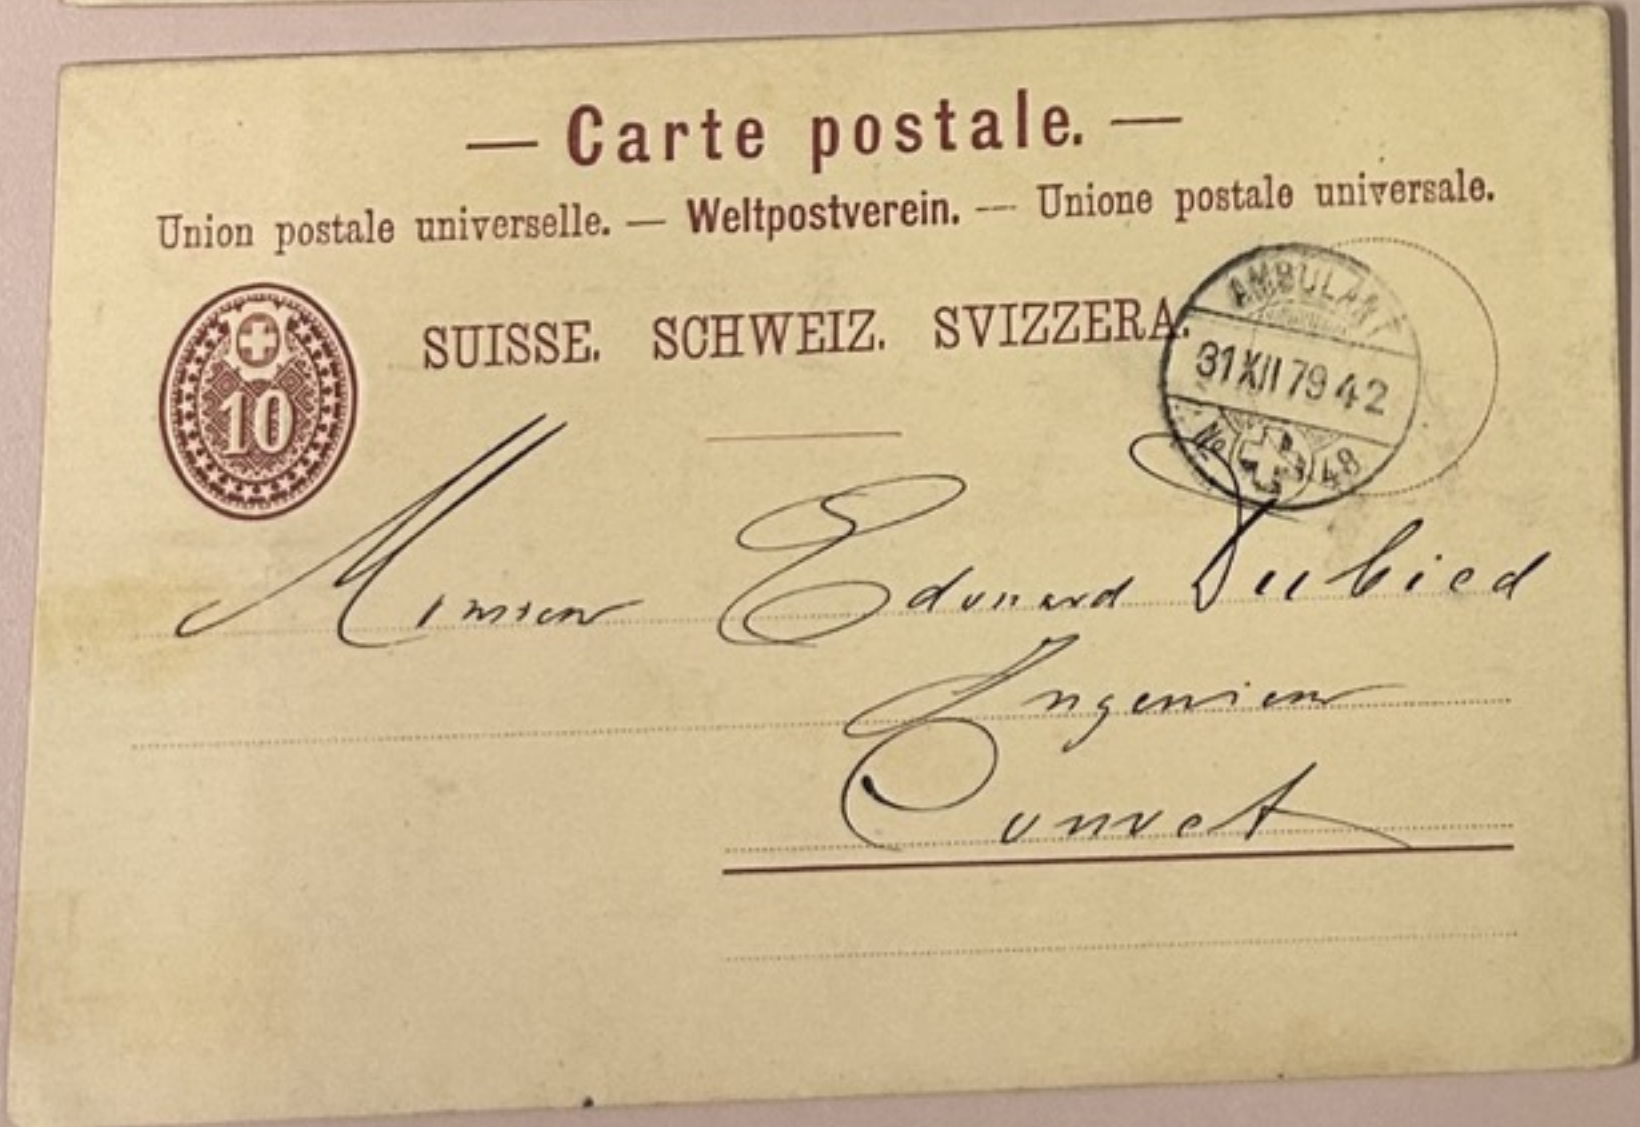 — Carte postale. —
Union postale universelle. — Weltpostverein. — Unione postale universale.
SUISSE. SCHWEIZ. SVIZZERA.
10
AMBULANT
31 XII 79 42
No 48
Monsieur Edouard Dubied
Ingenieur
Couvet